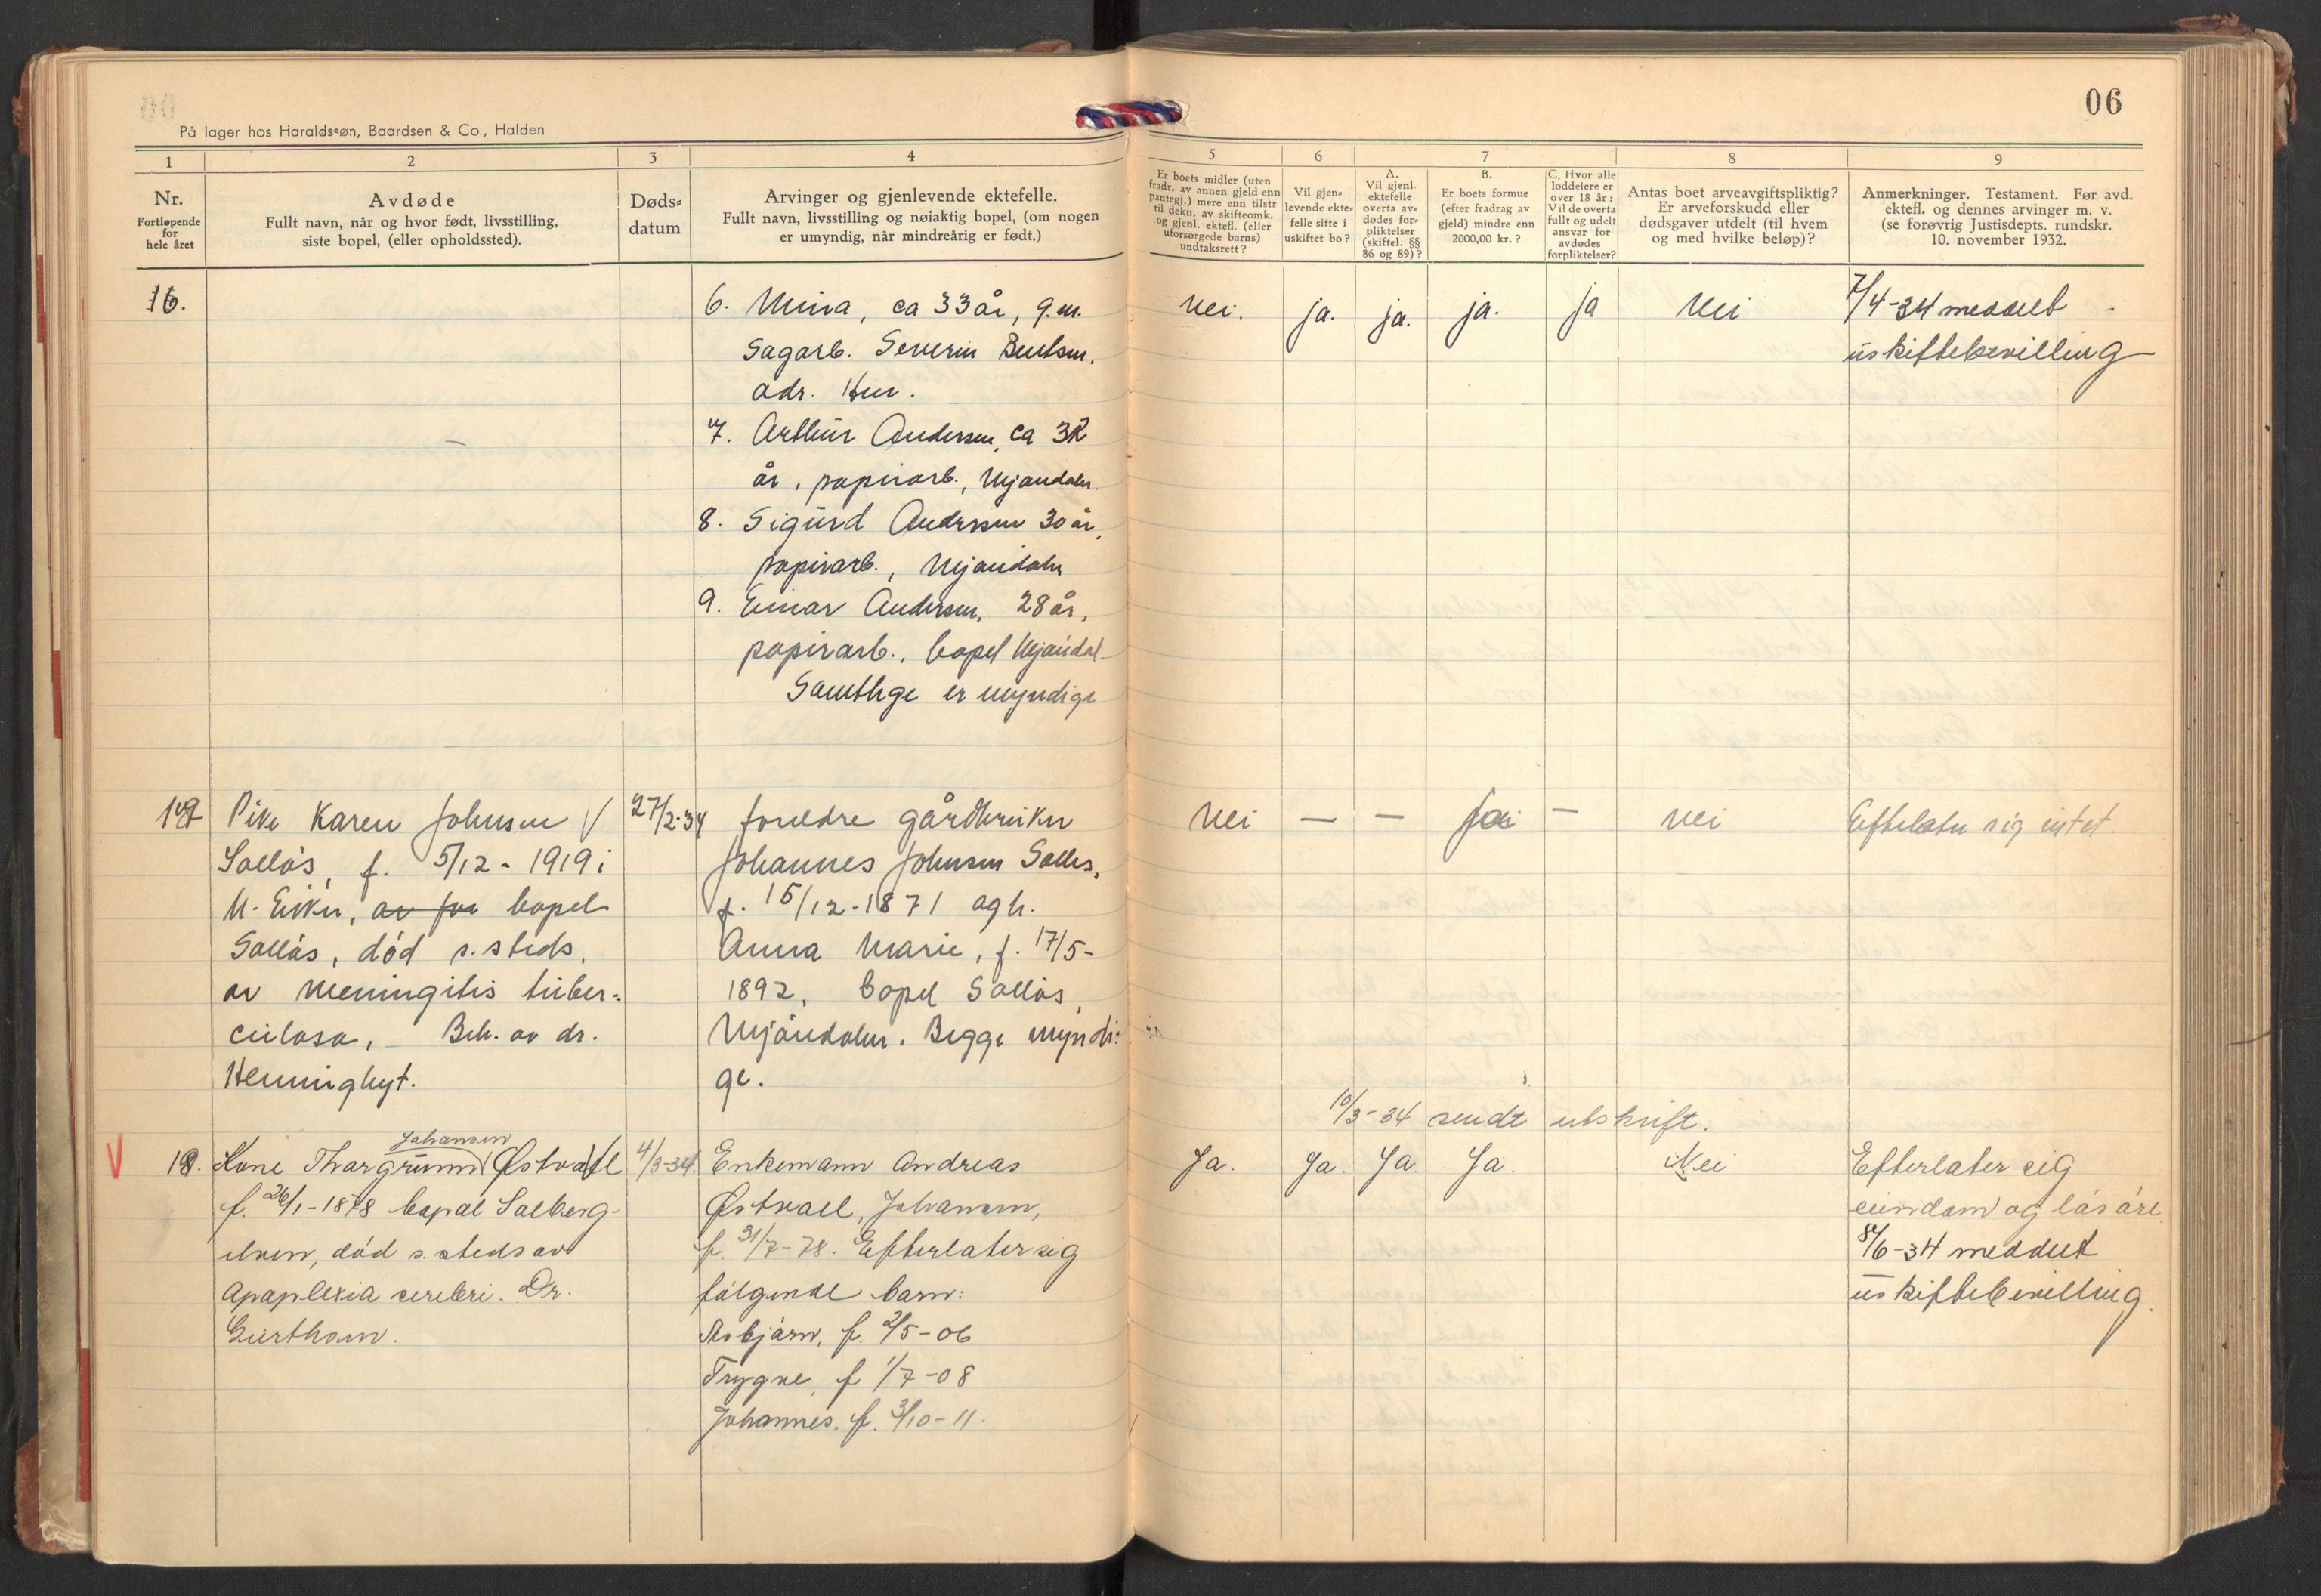 06
På lager hos Haraldssøn, Baardsen & Co, Halden
1 2 3 4 5 6 7 8 9
Nr.
Fortløpende
for
hele året
Avdøde
Fullt navn, når og hvor født, livsstilling,
siste bopel, (eller opholdssted).
Døds-
datum
Arvinger og gjenlevende ektefelle.
Fullt navn, livsstilling og nøiaktig bopel, (om nogen
er umyndig, når mindreårig er født.)
Er boets midler (uten
fradr. av annen gjeld enn
pantegj.) mere enn tilstr
til dekn. av skifteomk.
og gjenl. ektefl. (eller
uforsørgede barns)
undtaksrett?
Vil gjen-
levende ekte-
felle sitte i
uskiftet bo?
A.
Vil gjenl.
ektefelle
overta av-
dødes for-
pliktelser
(skiftel. §§
86 og 89)?
B.
Er boets formue
(efter fradrag av
gjeld) mindre enn
2000,00 kr.?
C. Hvor alle
loddeiere er
over 18 år:
Vil de overta
fullt og udelt
ansvar for
avdødes
forpliktelser?
Antas boet arveavgiftspliktig?
Er arveforskudd eller
dødsgaver utdelt (til hvem
og med hvilke beløp)?
Anmerkninger. Testament. Før avd.
ektefl. og dennes arvinger m. v.
(se forøvrig Justisdepts. rundskr.
10. november 1932.
16.
6. Mina, ca 33 år, g.m.
Sagarb. Severin Bentsen.
adr. Hur.
7. Arthur Andersen, ca 32
år, papirarb., Mjøndalen.
8. Sigurd Andersen 30 år,
papirarb., Mjøndalen
9. Einar Andersen, 28 år,
papirarb., bopel Mjøndal-
Samtlige er myndige
nei. ja. ja. ja. ja nei
7/4-34 meddelt
uskiftebevilling
17
Pike Karen Johnsen
Solløs, f. 5/12-1919 i
N. Eiker, av for bopel
Solløs, død s.steds,
av meningitis tuber-
culosa, Beh. av dr.
27/2-34
foreldre gårdbruker
Johannes Johnsen Solløs,
f. 15/12-1871 og h.
Anna Marie, f. 17/5-
1892, bopel Solløs,
Mjøndalen. Begge myndi-
ge.
nei — — ja — nei
Efterlater sig intet.
10/3-34 sendt utskrift.
V
18.
Johansen
Kone Thorgrunn Østvoll
f. 26/1-1878 bopel Solberg-
elven, død s.steds av
Apoplexia cerebri. Dr.
4/3-34.
Enkemann Andreas
Østvoll, Johansen,
f. 31/7-78. Efterlater sig
følgende barn:
Asbjørn, f. 2/5-06
Trygve, f 1/7-08
Johannes. f. 3/10-11.
Ja. Ja. Ja. Ja. Nei
Efterlater sig
eiendom og løsøre.
8/6-34 meddelt
uskiftebevilling.